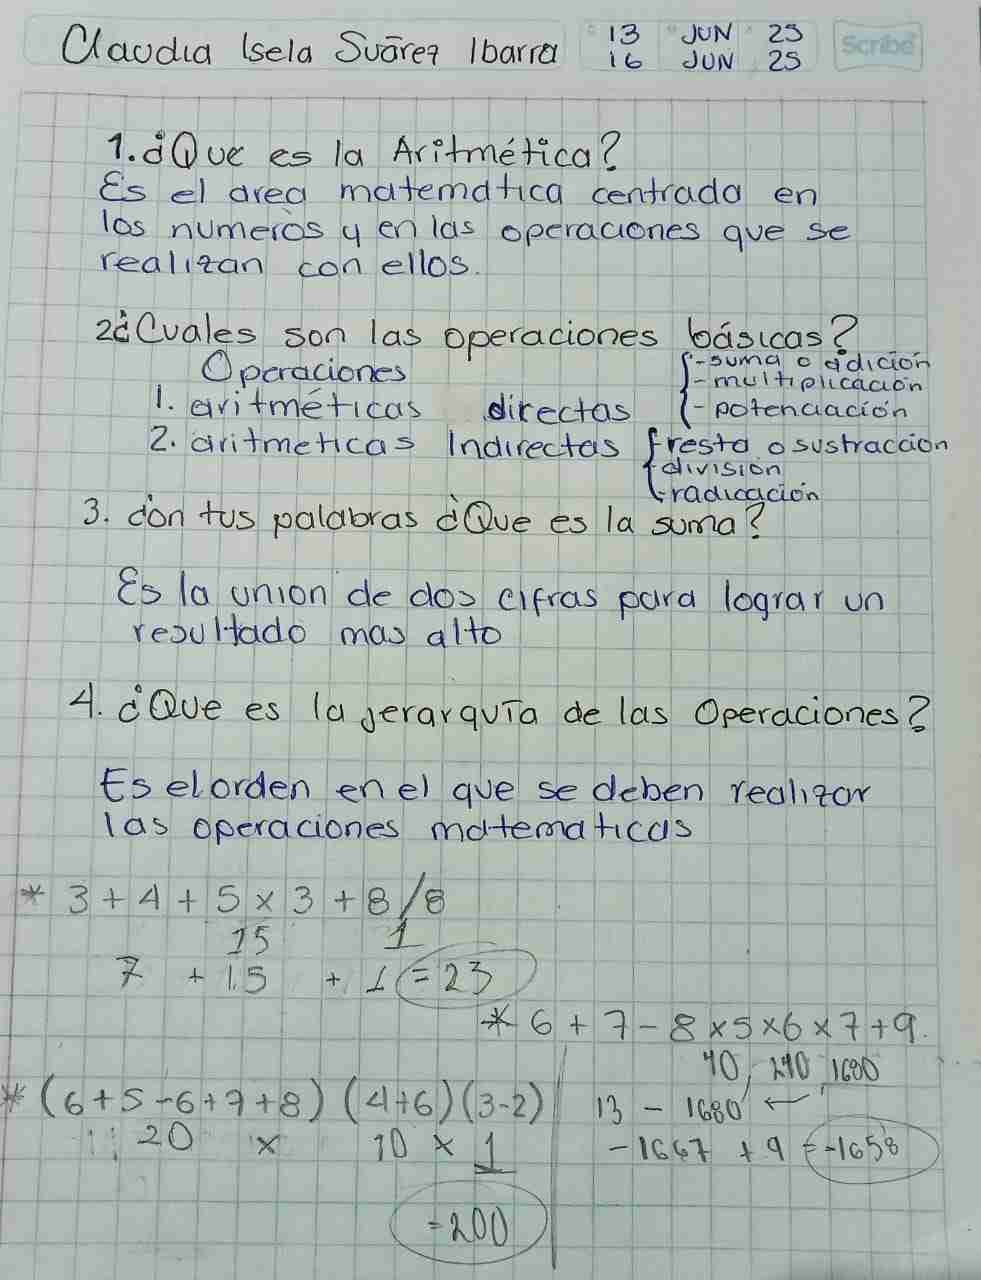 Claudia Isela Suárez Ibarra
13 JUN 25
16 JUN 25
Scribe
1. ¿Que es la Aritmética?
Es el area matematica centrada en
los numeros y en las operaciones que se
realizan con ellos.
2¿Cuales son las operaciones básicas?
Operaciones
1. aritméticas directas
- suma o adición
- multiplicación
- potenciación
2. aritmeticas Indirectas
resta o sustraccion
división
radicación
3. Con tus palabras ¿Que es la suma?
Es la union de dos cifras para lograr un
resultado mas alto
4. ¿Que es la jerarquía de las Operaciones?
Es el orden en el que se deben realizar
las operaciones matematicas
* 3 + 4 + 5 x 3 + 8 / 8
15 1
7 + 15 + 1 = 23
* 6 + 7 - 8 x 5 x 6 x 7 + 9.
40, 240, 1680
13 - 1680 ←
- 1667 + 9 = -1658
* (6+5-6+7+8) (4+6) (3-2)
20 x 10 x 1
= 200